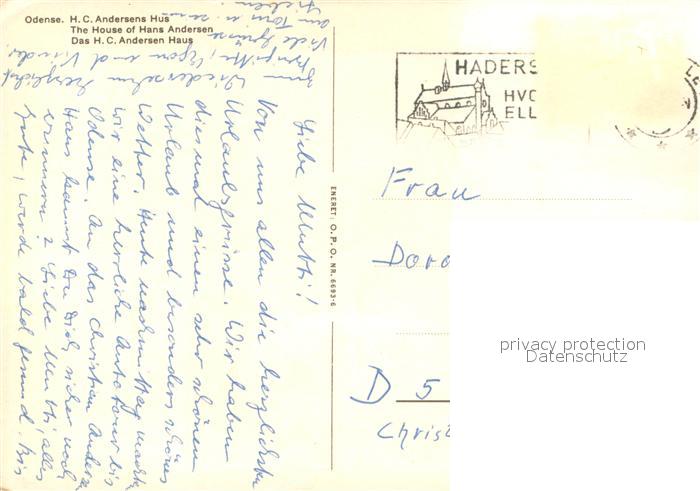 Odense. H. C. Andersens Hus
The House of Hans Andersen
Das H. C. Andersen Haus
Liebe Mutti!
Von uns allen die herzlichsten
Urlaubsgrüsse. Wir haben
diesmal einen sehr schönen
Urlaub und besonders schönes
Wetter. Heute nachmittag machten
wir eine herrliche Autotour bis
Odense. An das Christian Anders.
Haus kannst Du Dich sicher noch
erinnern? Liebe Mutti, alles
Gute, werde bald gesund. Bis
zum Wiedersehen herzlichst
Brigitte, Egon und Kinder
Viele Grüsse
ENERET: O. P. O. NR. 6693-6
HADERS
HVO
ELL
Frau
Doro
privacy protection
Datenschutz
D 5
Christ